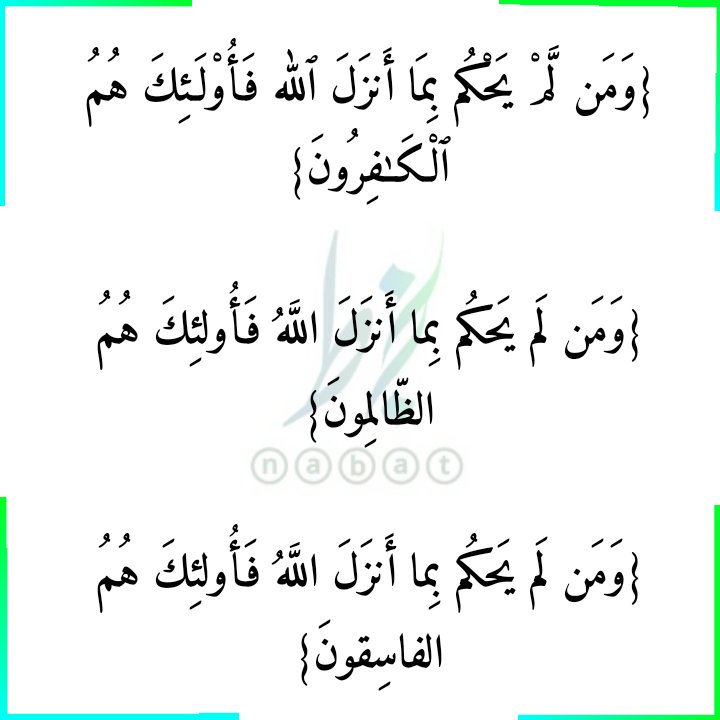 {وَمَن لَّمْ يَحْكُم بِمَا أَنزَلَ ٱلله فَأُوْلَـئِكَ هُمُ
ٱلْكَـٰفِرُونَ}
{وَمَن لَم يَحكُم بِما أَنزَلَ اللَّهُ فَأُولئِكَ هُمُ
الظّالِمونَ}
nabat
{وَمَن لَم يَحكُم بِما أَنزَلَ اللَّهُ فَأُولئِكَ هُمُ
الفاسِقونَ}